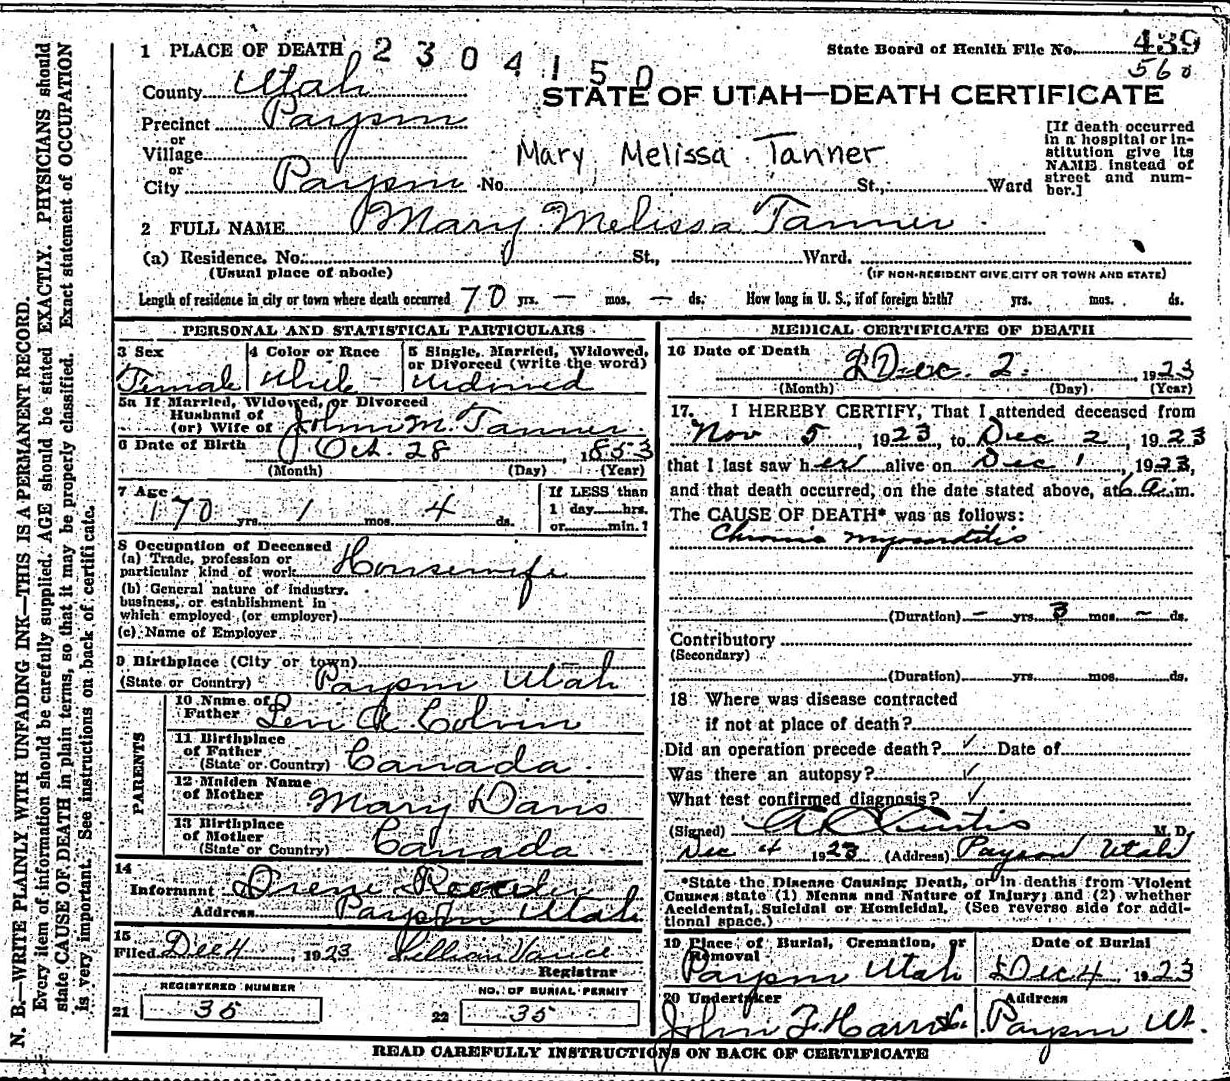 N. B.—WRITE PLAINLY WITH UNFADING INK—THIS IS A PERMANENT RECORD.
Every item of information should be carefully supplied. AGE should be stated EXACTLY. PHYSICIANS should
state CAUSE OF DEATH in plain terms, so that it may be properly classified. Exact statement of OCCUPATION
is very important. See instructions on back of certificate.
1 PLACE OF DEATH 2304150 State Board of Health File No. 439
560
County Utah
STATE OF UTAH—DEATH CERTIFICATE
Precinct Payson
or
Village
or
City Payson No. St., Ward
Mary Melissa Tanner
[If death occurred
in a hospital or in-
stitution give its
NAME instead of
street and num-
ber.]
2 FULL NAME Mary Melissa Tanner
(a) Residence. No. St., Ward.
(Usual place of abode) (IF NON-RESIDENT GIVE CITY OR TOWN AND STATE)
Length of residence in city or town where death occurred 70 yrs. — mos. — ds. How long in U. S., if of foreign birth? yrs. mos. ds.
PERSONAL AND STATISTICAL PARTICULARS
3 Sex 4 Color or Race 5 Single, Married, Widowed,
or Divorced (write the word)
Female White Widowed
5a If Married, Widowed, or Divorced
Husband of
(or) Wife of John M. Tanner
6 Date of Birth Oct. 28, 1853
(Month) (Day) (Year)
7 Age If LESS than
70 yrs. 1 mos. 4 ds. 1 day hrs.
or min.?
8 Occupation of Deceased
(a) Trade, profession or
particular kind of work Housewife
(b) General nature of industry,
business, or establishment in
which employed (or employer)
(c) Name of Employer
9 Birthplace (City or town)
(State or Country) Payson Utah
PARENTS
10 Name of
Father Levi A Colvin
11 Birthplace
of Father
(State or Country) Canada
12 Maiden Name
of Mother Mary Davis
13 Birthplace
of Mother
(State or Country) Canada
14
Informant Orene Reeder
Address Payson Utah
15
Filed Dec 4, 1923 Lillian Vance
Registrar
REGISTERED NUMBER NO. OF BURIAL PERMIT
21 35 22 35
MEDICAL CERTIFICATE OF DEATH
16 Date of Death
Dec. 2 1923
(Month) (Day) (Year)
17. I HEREBY CERTIFY, That I attended deceased from
Nov 5, 1923, to Dec 2, 1923
that I last saw her alive on Dec 1, 1923,
and that death occurred, on the date stated above, at 6 a.m.
The CAUSE OF DEATH* was as follows:
Chronic myocarditis
(Duration) — yrs. 3 mos. — ds.
Contributory
(Secondary)
(Duration) yrs. mos. ds.
18 Where was disease contracted
if not at place of death?
Did an operation precede death? ✓ Date of
Was there an autopsy? ✓
What test confirmed diagnosis? ✓
(Signed) Curtis M. D.
Dec 4 1923 (Address) Payson Utah
*State the Disease Causing Death, or in deaths from Violent
Causes state (1) Means and Nature of Injury; and (2) whether
Accidental, Suicidal or Homicidal. (See reverse side for addi-
tional space.)
19 Place of Burial, Cremation, or Date of Burial
Removal
Payson Utah Dec 4 1923
20 Undertaker Address
John T. Payson Ut.
READ CAREFULLY INSTRUCTIONS ON BACK OF CERTIFICATE